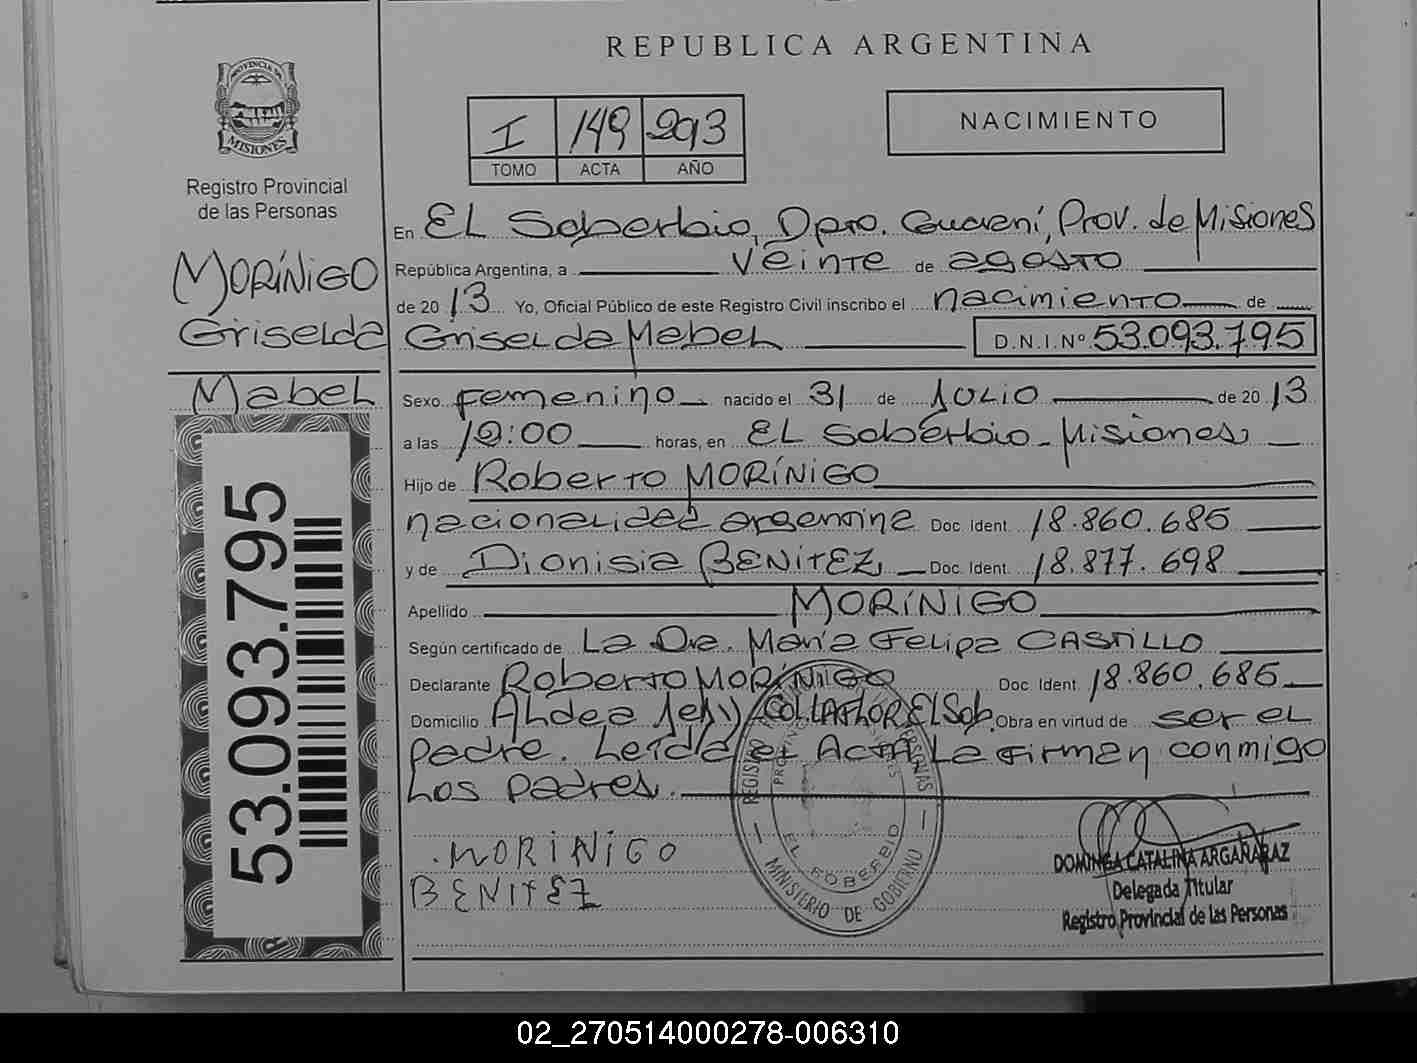 REPUBLICA ARGENTINA
PROVINCIA DE
MISIONES
Registro Provincial
de las Personas
I 149 2013
TOMO ACTA AÑO
NACIMIENTO
MORÍNIGO
Griselda
Mabel
53.093.795
En EL Soberbio, Dpto. Guaraní, Prov. de Misiones
República Argentina, a veinte de agosto
de 2013 Yo, Oficial Público de este Registro Civil inscribo el nacimiento de
Griselda Mabel D.N.I.Nº 53.093.795
Sexo femenino nacido el 31 de julio de 2013
a las horas, en EL Soberbio - Misiones
Hijo de Roberto MORÍNIGO
nacionalidad argentina Doc. Ident. 18.860.685
y de Dionisia BENITEZ Doc. Ident. 18.877.698
Apellido MORÍNIGO
Según certificado de La Dra. María Felipa CASTILLO
Declarante Roberto MORÍNIGO Doc. Ident. 18.860.685
Domicilio Aldea El Sob. Obra en virtud de ser el
padre. Leída el Acta La firman conmigo
Los padres.
MORINIGO
BENITEZ
EL SOBERBIO
MINISTERIO DE GOBIERNO
DOMINGA CATALINA ARGAÑARAZ
Delegada Titular
Registro Provincial de las Personas
02_270514000278-006310